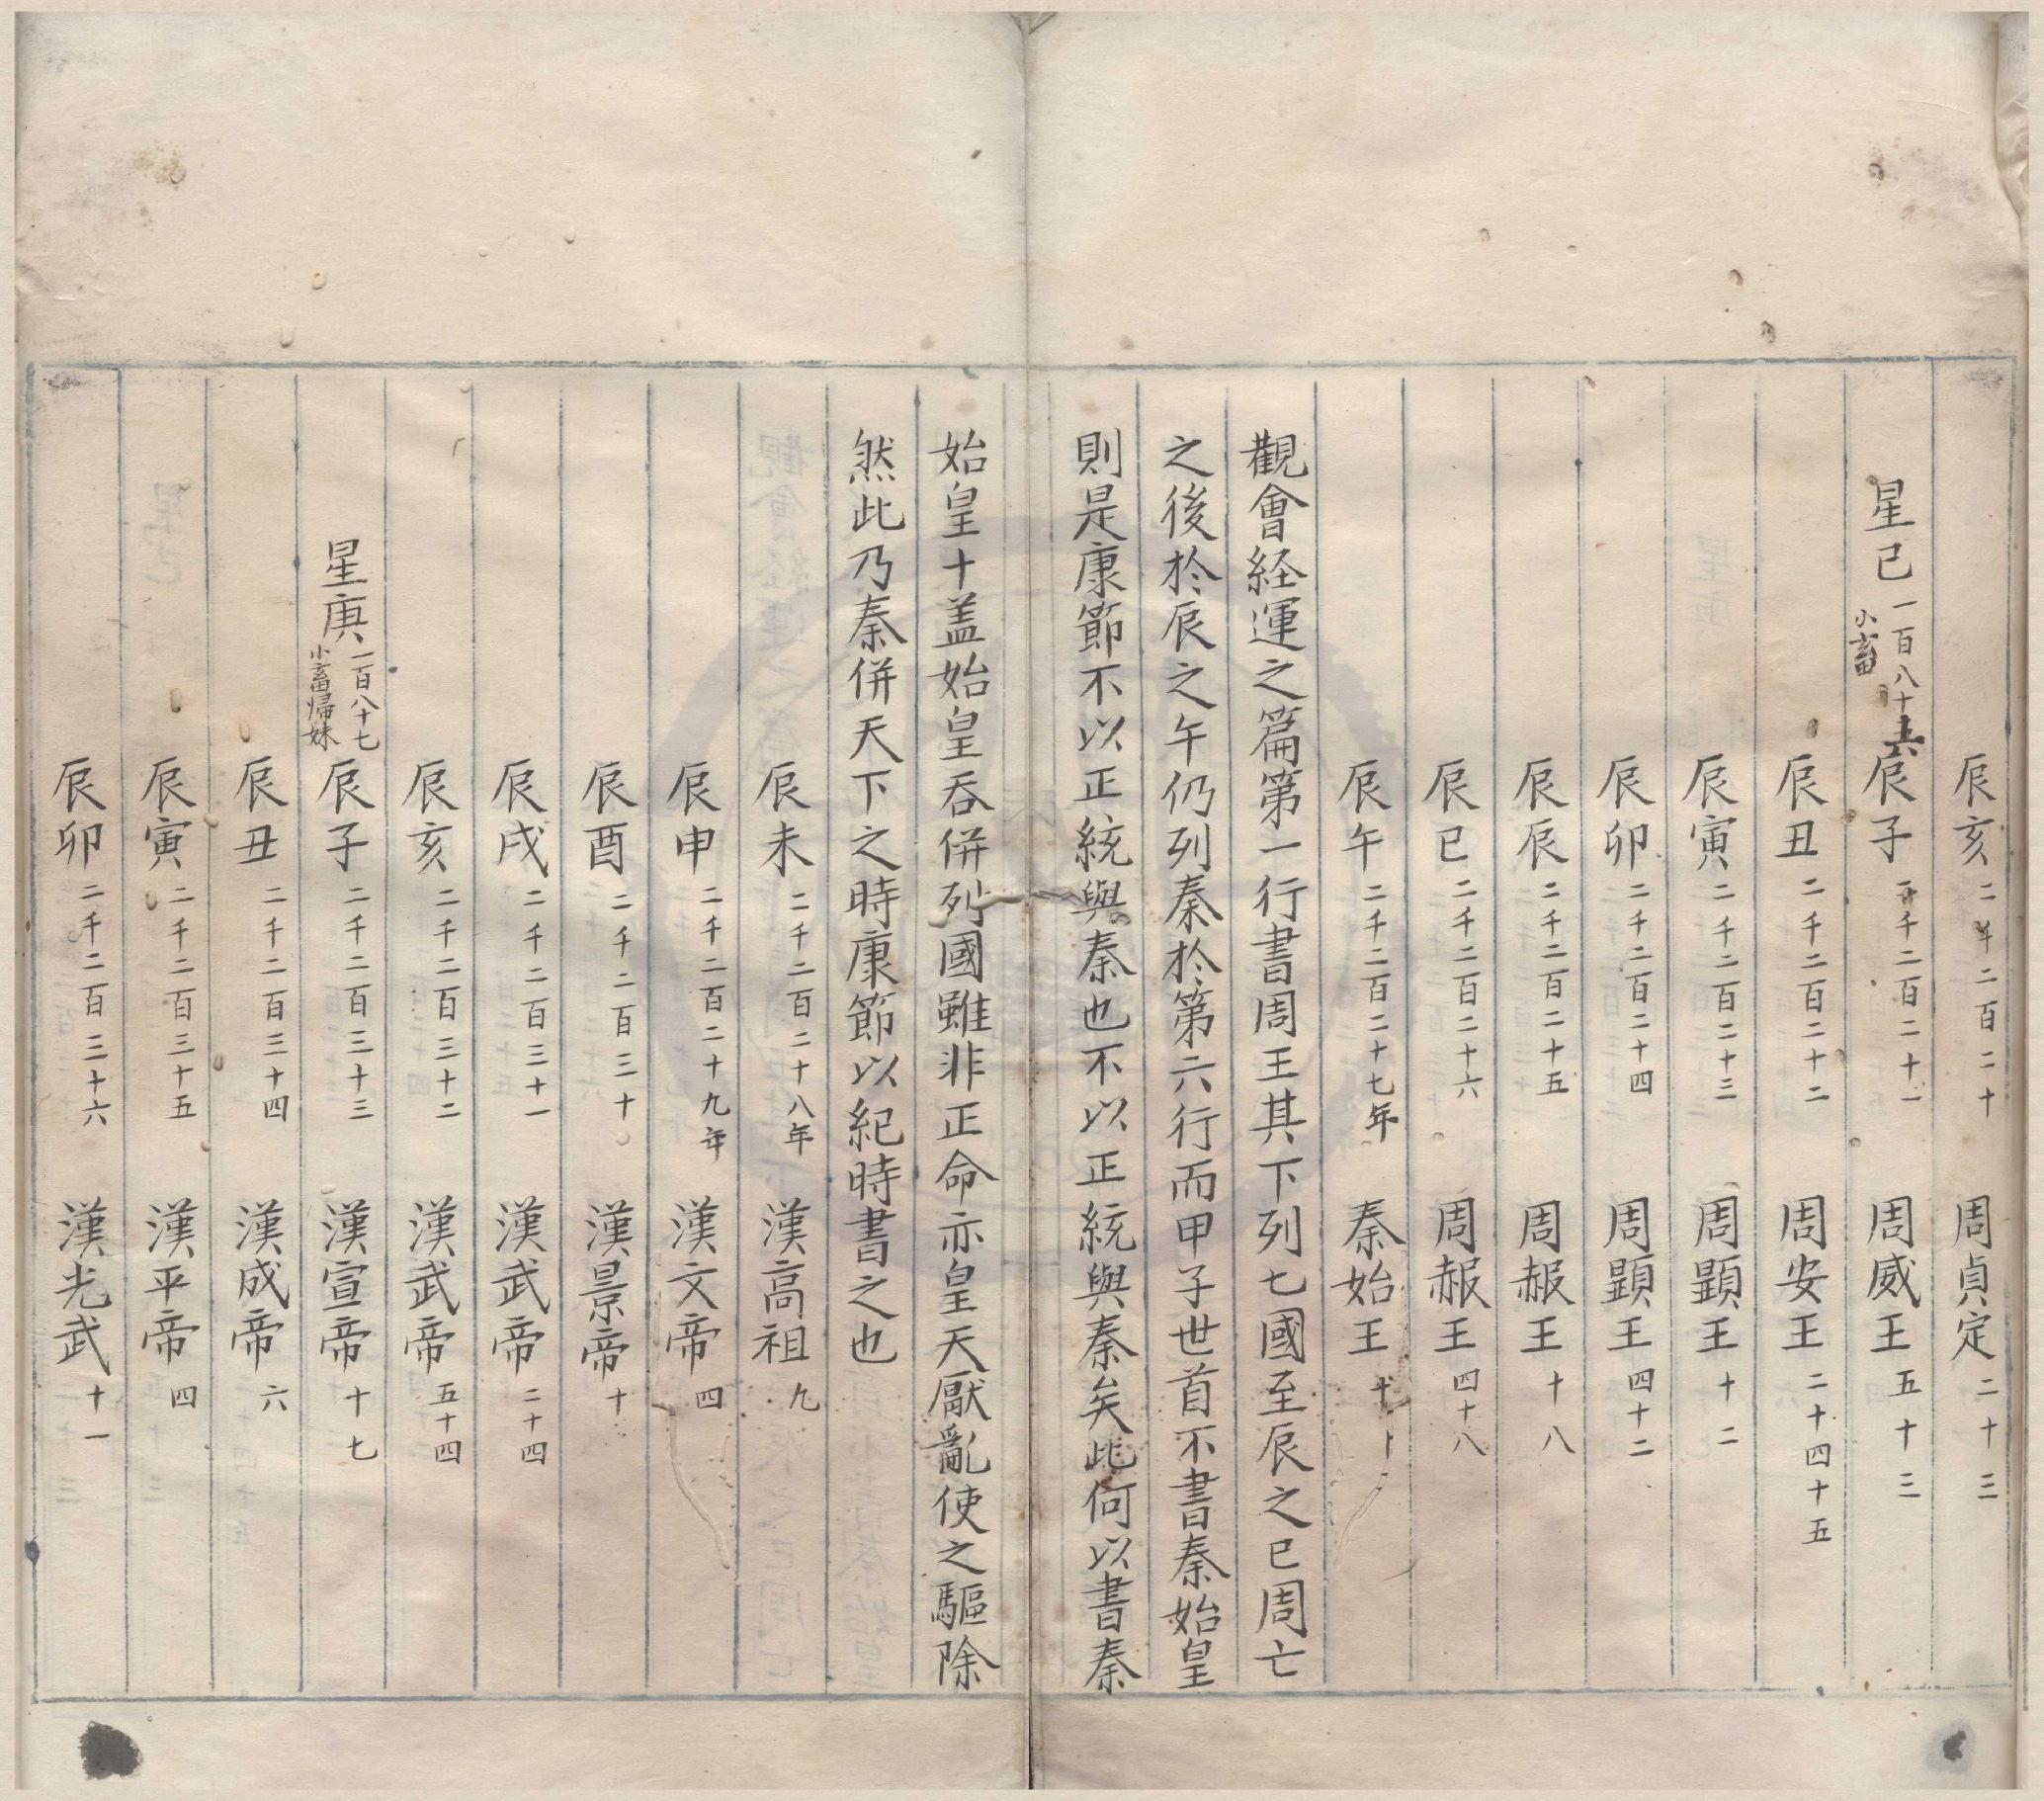 辰亥二千二百二十 周貞定二十三
星巳一百八十六小畜 辰子二千二百二十一 周威王五十三
辰丑二千二百二十二 周安王二十四十五
辰寅二千二百二十三 周顕王十二
辰卯二千二百二十四 周顕王四十二
辰辰二千二百二十五 周赧王十八
辰巳二千二百二十六 周赧王四十八
辰午二千二百二十七年 秦始王十
觀會経運之篇第一行書周王其下列七國至辰之巳周亡
之後於辰之午仍列秦於第六行而甲子世首不書秦始皇
則是康節不以正統與秦也不以正統與秦矣此何以書秦
始皇十盖始皇吞併列國雖非正命亦皇天厭亂使之驅除
然此乃秦併天下之時康節以紀時書之也
辰未二千二百二十八年 漢高祖九
辰申二千二百二十九年 漢文帝四
辰酉二千二百三十 漢景帝十
辰戌二千二百三十一 漢武帝二十四
辰亥二千二百三十二 漢武帝五十四
星庚一百八十七小畜歸妹 辰子二千二百三十三 漢宣帝十七
辰丑二千二百三十四 漢成帝六
辰寅二千二百三十五 漢平帝四
辰卯二千二百三十六 漢光武十一